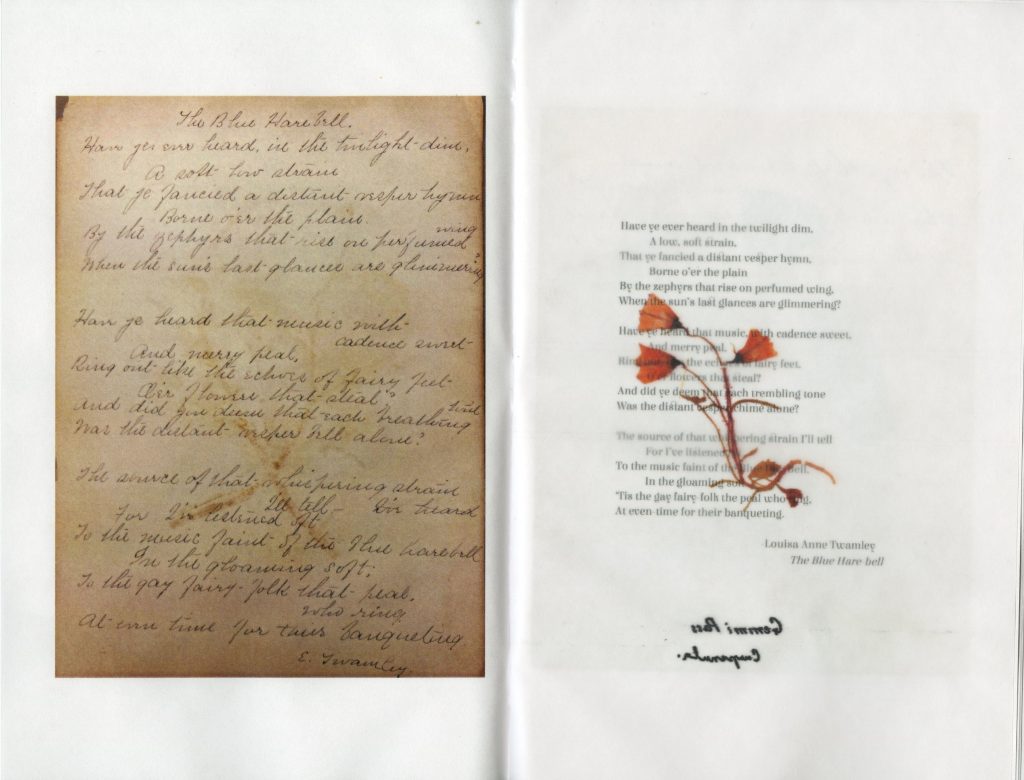 The Blue Harebell.
Have yer ever heard, in the twilight dim,
A soft low strain
That ye fancied a distant vesper hymn
Borne o'er the plain.
By the zephyrs that rise on perfumed wing
When the sun's last glances are glimmering?
Have ye heard that music with
cadence sweet
And merry peal,
Ring out like the echoes of Fairy feet
O'er Flowers that steal?
And did you deem that each breathing tone
Was the distant vesper bell alone?
The source of that whispering strain
I'll tell
For I've listened oft I've heard
To the music faint of the blue harebell
In the gloaming soft;
Is the gay fairy-folk that peal,
who ring
At even time for their banqueting
E. Twamley
Have ye ever heard in the twilight dim,
A low, soft strain,
That ye fancied a distant vesper hymn,
Borne o'er the plain
By the zephyrs that rise on perfumed wing,
When the sun's last glances are glimmering?
Have ye heard that music, with cadence sweet,
And merry peal,
Ring out like the echoes of fairy feet,
O'er flowers that steal?
And did ye deem that each trembling tone
Was the distant vesper chime alone?
The source of that whispering strain I'll tell
For I've listened
To the music faint of the Blue Hare-bell.
In the gloaming soft
'Tis the gay fairy folk the peal who ring,
At even-time for their banqueting.
Louisa Anne Twamley
The Blue Hare-bell
Gemmi Pass